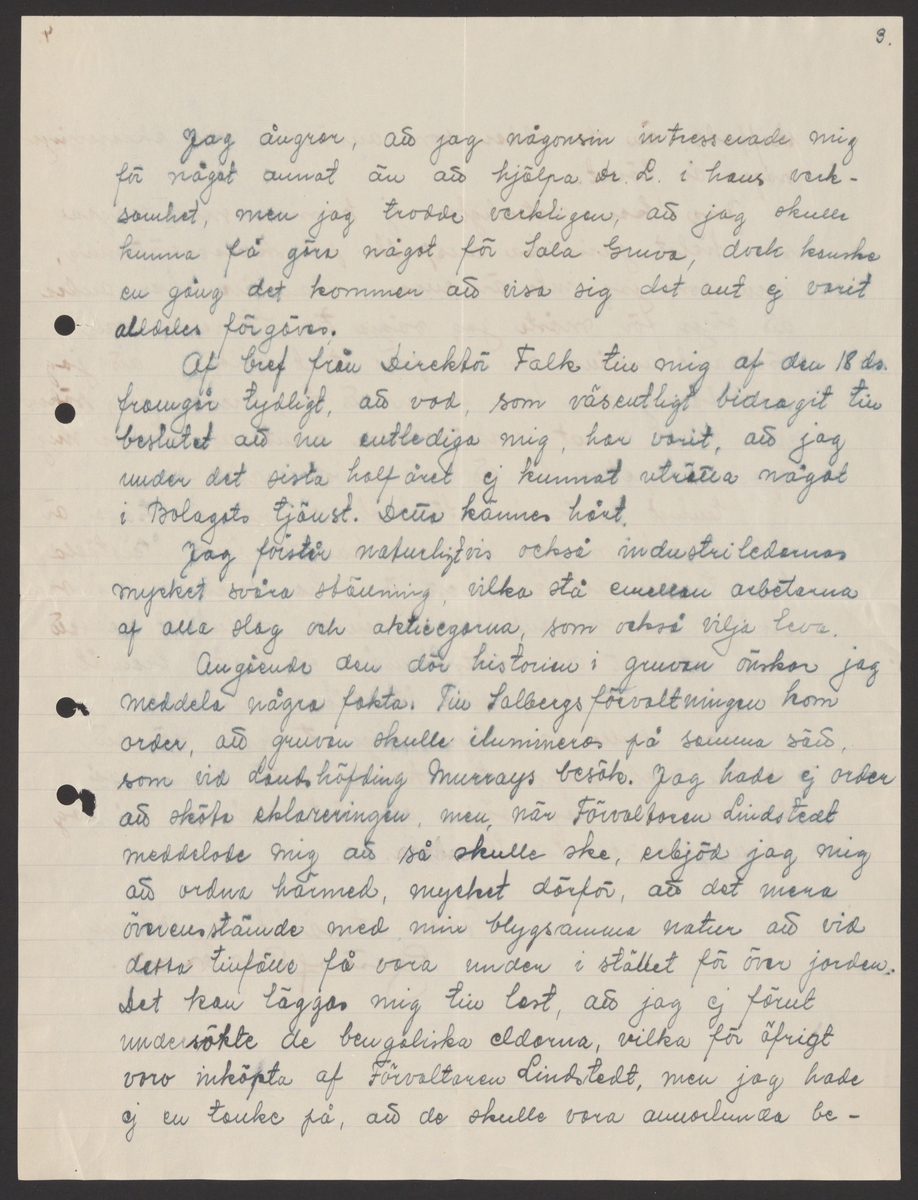 3.
Jag ångrar, att jag någonsin intresserade mig
för något annat än att hjälpa Dr. L. i hans verk-
samhet, men jag trodde verkligen, att jag skulle
kunna få göra något för Sala Gruva, dock kanske
en gång det kommer att visa sig det ant ej varit
alldeles förgäves.
Af bref från Direktör Falk till mig af den 18 ds.
framgår tydligt, att vad, som väsentligt bidragit till
beslutet att nu entlediga mig, har varit, att jag
under det sista halfåret ej kunnat uträtta något
i Bolagets tjänst. Detta kännes hårt.
Jag förstår naturligtvis också industriledarnas
mycket svåra ställning, vilka stå emellan arbetarna
af alla slag och aktieegarna, som också vilja leva.
Angående den där historien i gruvan önskar jag
meddela några fakta. Till Salbergsförvaltningen kom
order, att gruvan skulle ilumineras på samma sätt,
som vid Landshöfding Murrays besök. Jag hade ej order
att sköta eklareringen, men, när Förvaltaren Lindstedt
meddelade mig att så skulle ske, erbjöd jag mig
att ordna härmed, mycket därför, att det mera
överensstämde med min blygsamma natur att vid
detta tillfälle få vara under i stället för över jorden.
Det kan läggas mig till last, att jag ej förut
undersökte de bengaliska eldarna, vilka för öfrigt
voro inköpta af Förvaltaren Lindstedt, men jag hade
ej en tanke på, att de skulle vara annorlunda be-